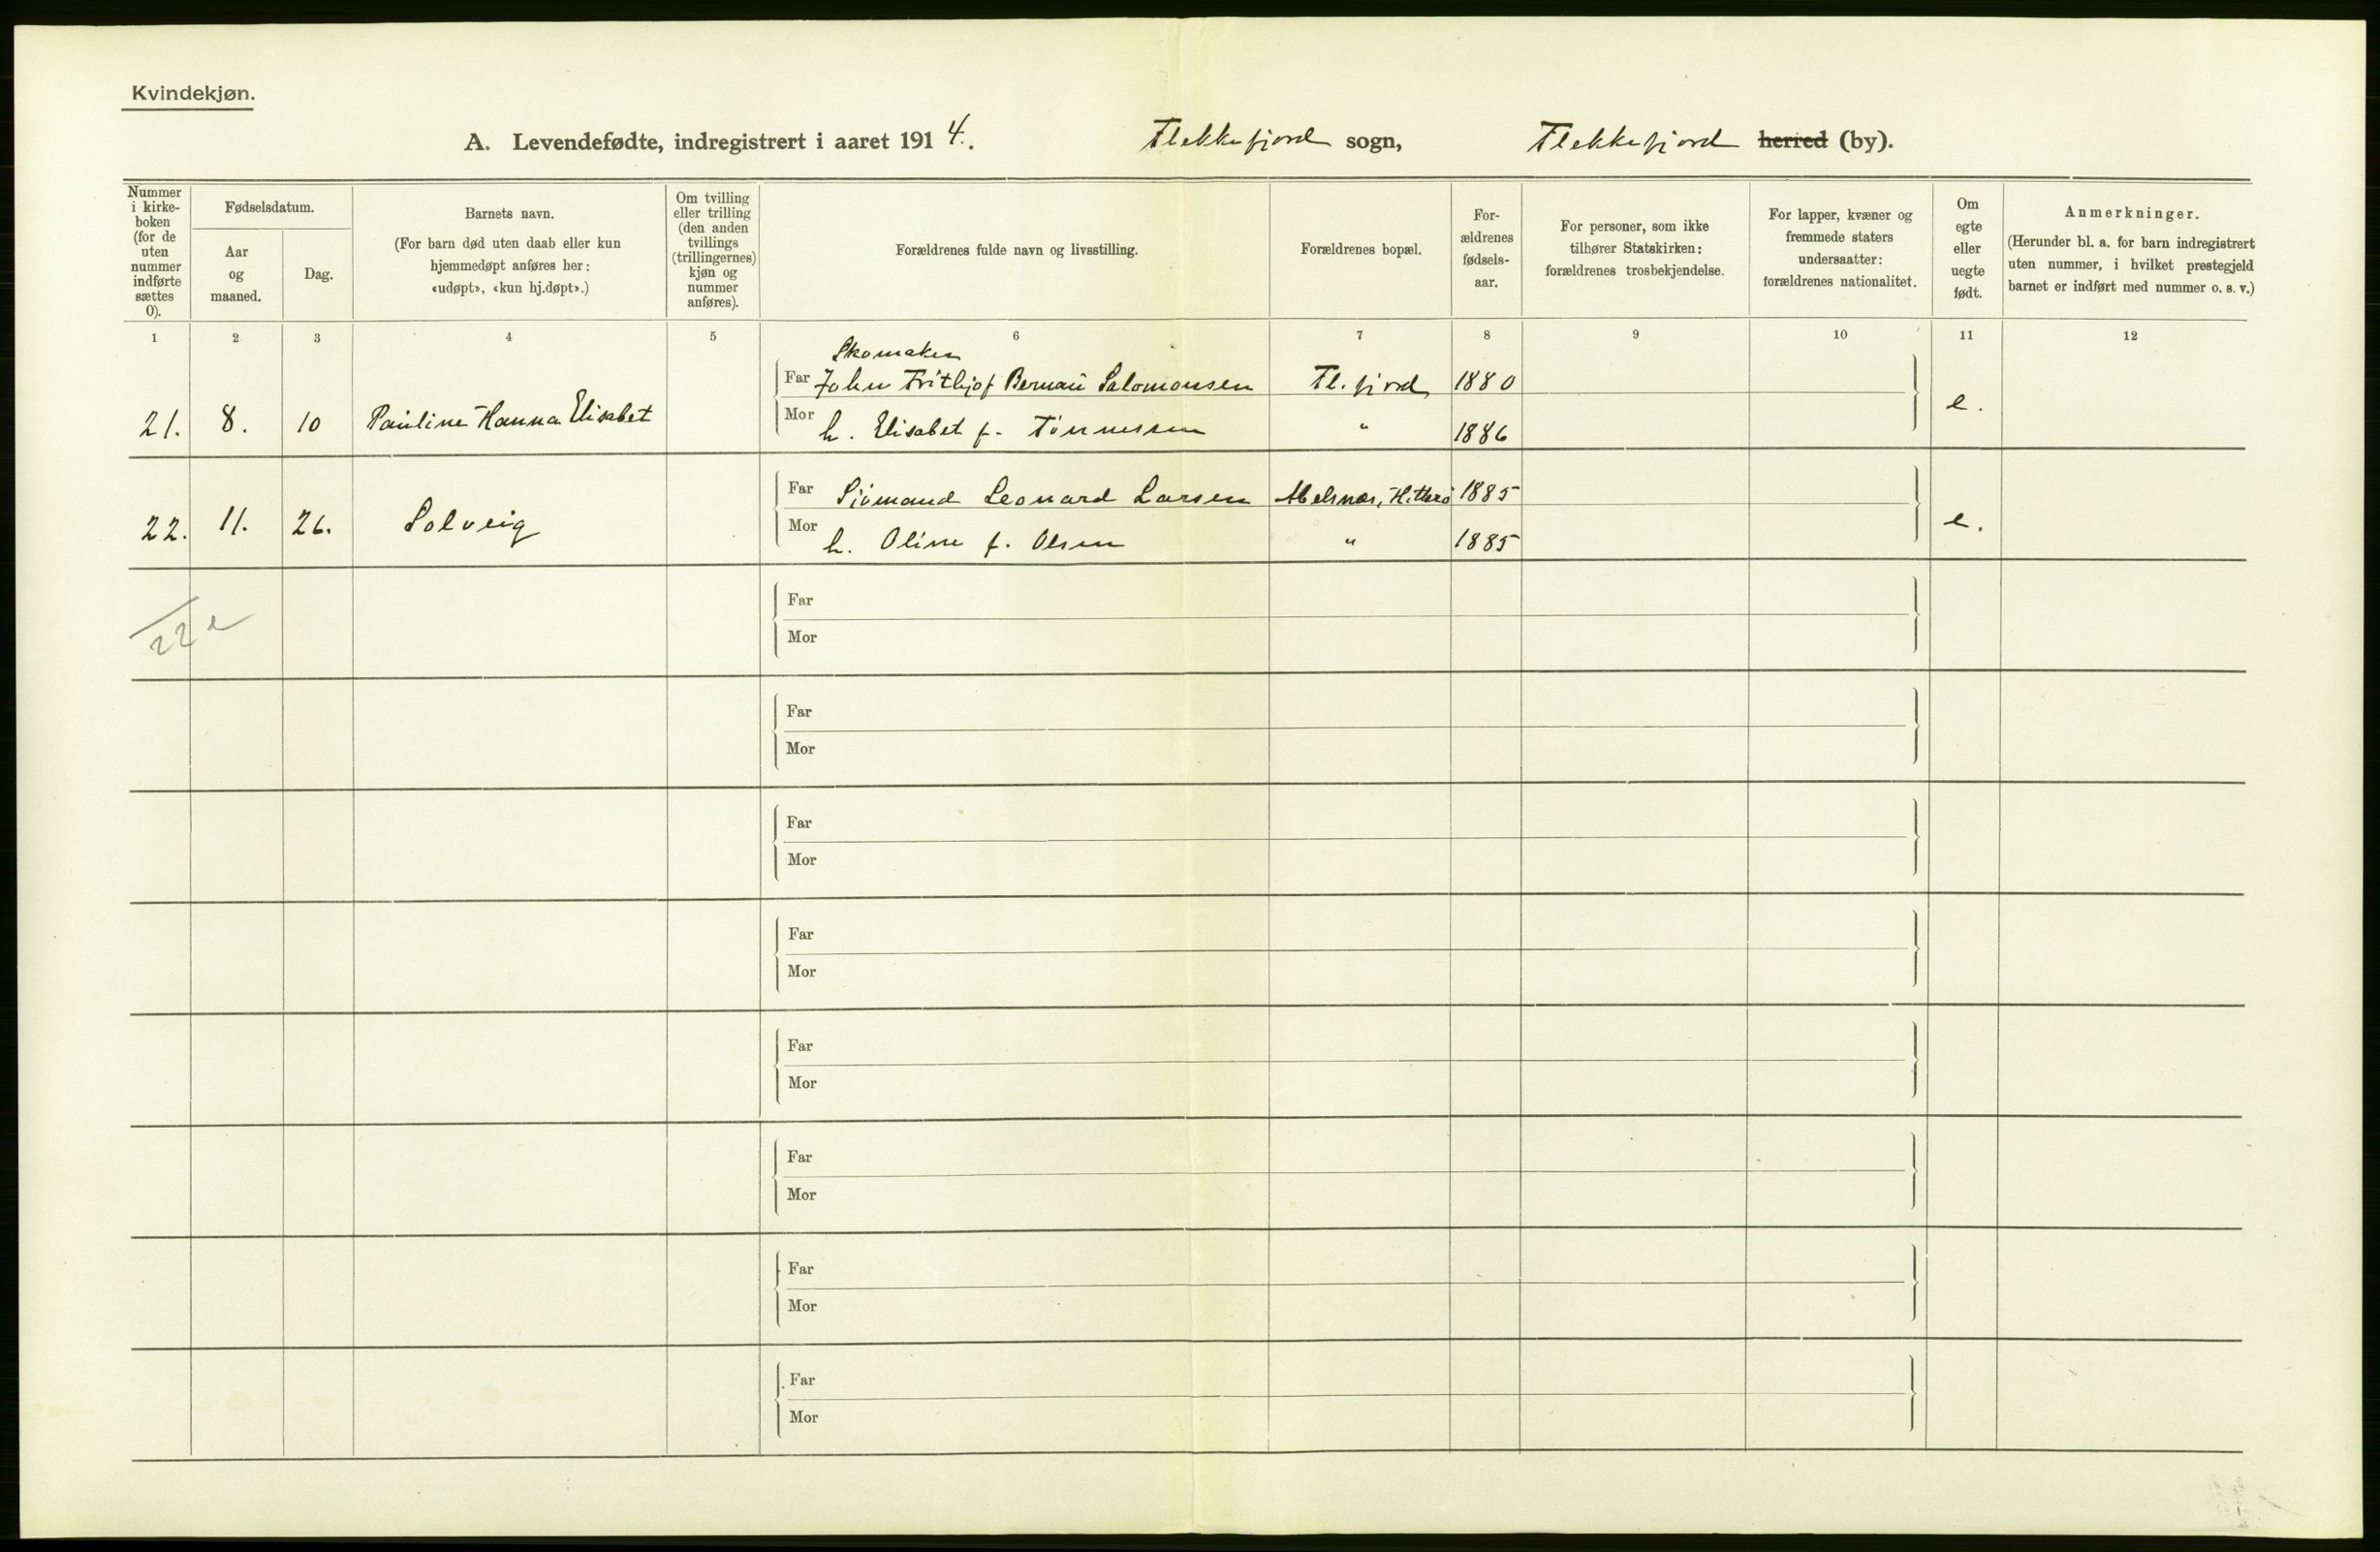 Kvindekjøn.
A. Levendefødte, indregistrert i aaret 1914. Flekkefjord sogn, Flekkefjord herred (by).
Nummer i kirke-boken (for de uten nummer indførte sættes 0).
Fødselsdatum.
Aar og maaned.
Dag.
Barnets navn.
(For barn død uten daab eller kun
hjemmedøpt anføres her:
«udøpt», «kun hj.døpt».)
Om tvilling
eller trilling
(den anden
tvillings
(trillingernes)
kjøn og
nummer
anføres).
Forældrenes fulde navn og livsstilling.
Forældrenes bopæl.
For-
ældrenes
fødsels-
aar.
For personer, som ikke
tilhører Statskirken:
forældrenes trosbekjendelse.
For lapper, kvæner og
fremmede staters
undersaatter:
forældrenes nationalitet.
Om
egte
eller
uegte
født.
Anmerkninger.
(Herunder bl. a. for barn indregistrert
uten nummer, i hvilket prestegjeld
barnet er indført med nummer o. s. v.)
1 2 3 4 5 6 7 8 9 10 11 12
Skomaker
Far John Frithjof Salomonsen Fl.fjord 1880
21. 8. 10 Pauline Hanna Elisabet e.
Mor h. Elisabet f. Tönnessen " 1886
Far Sjömand Leonard Larsen Abelsnæs, Hitterö 1885
22. 11. 26. Solveig e.
Mor h. Oline f. Olsen " 1885
22 e
Far
Mor
Far
Mor
Far
Mor
Far
Mor
Far
Mor
Far
Mor
Far
Mor
Far
Mor